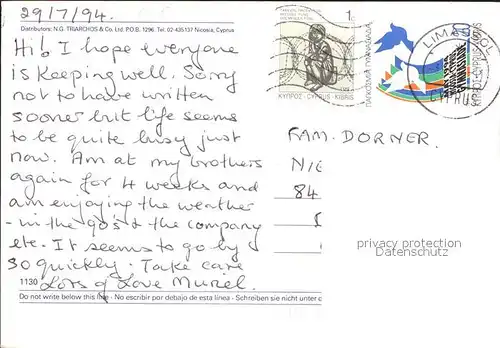 29/7/94.
Distributors: N.G. TRIARCHOS & Co. Ltd. P.O.B. 1296. Tel. 02-435137 Nicosia, Cyprus
Hi b I hope everyone
is Keeping well. Sorry
not to have written
sooner but life seems
to be quite busy just
now. Am at my brothers
again for 4 weeks and
am enjoying the weather
- in the 90's & the company
etc. It seems to go by
so quickly. Take care
Lots of Love Muriel.
1130
Do not write below this line - No escribir por debajo de esta línea - Schreiben sie nicht unter
1c
ΚΥΠΡΟΣ - CYPRUS - KIBRIS
LIMASSOL
CYPRUS
FAM. DORNER.
NIE
84
privacy protection
Datenschutz